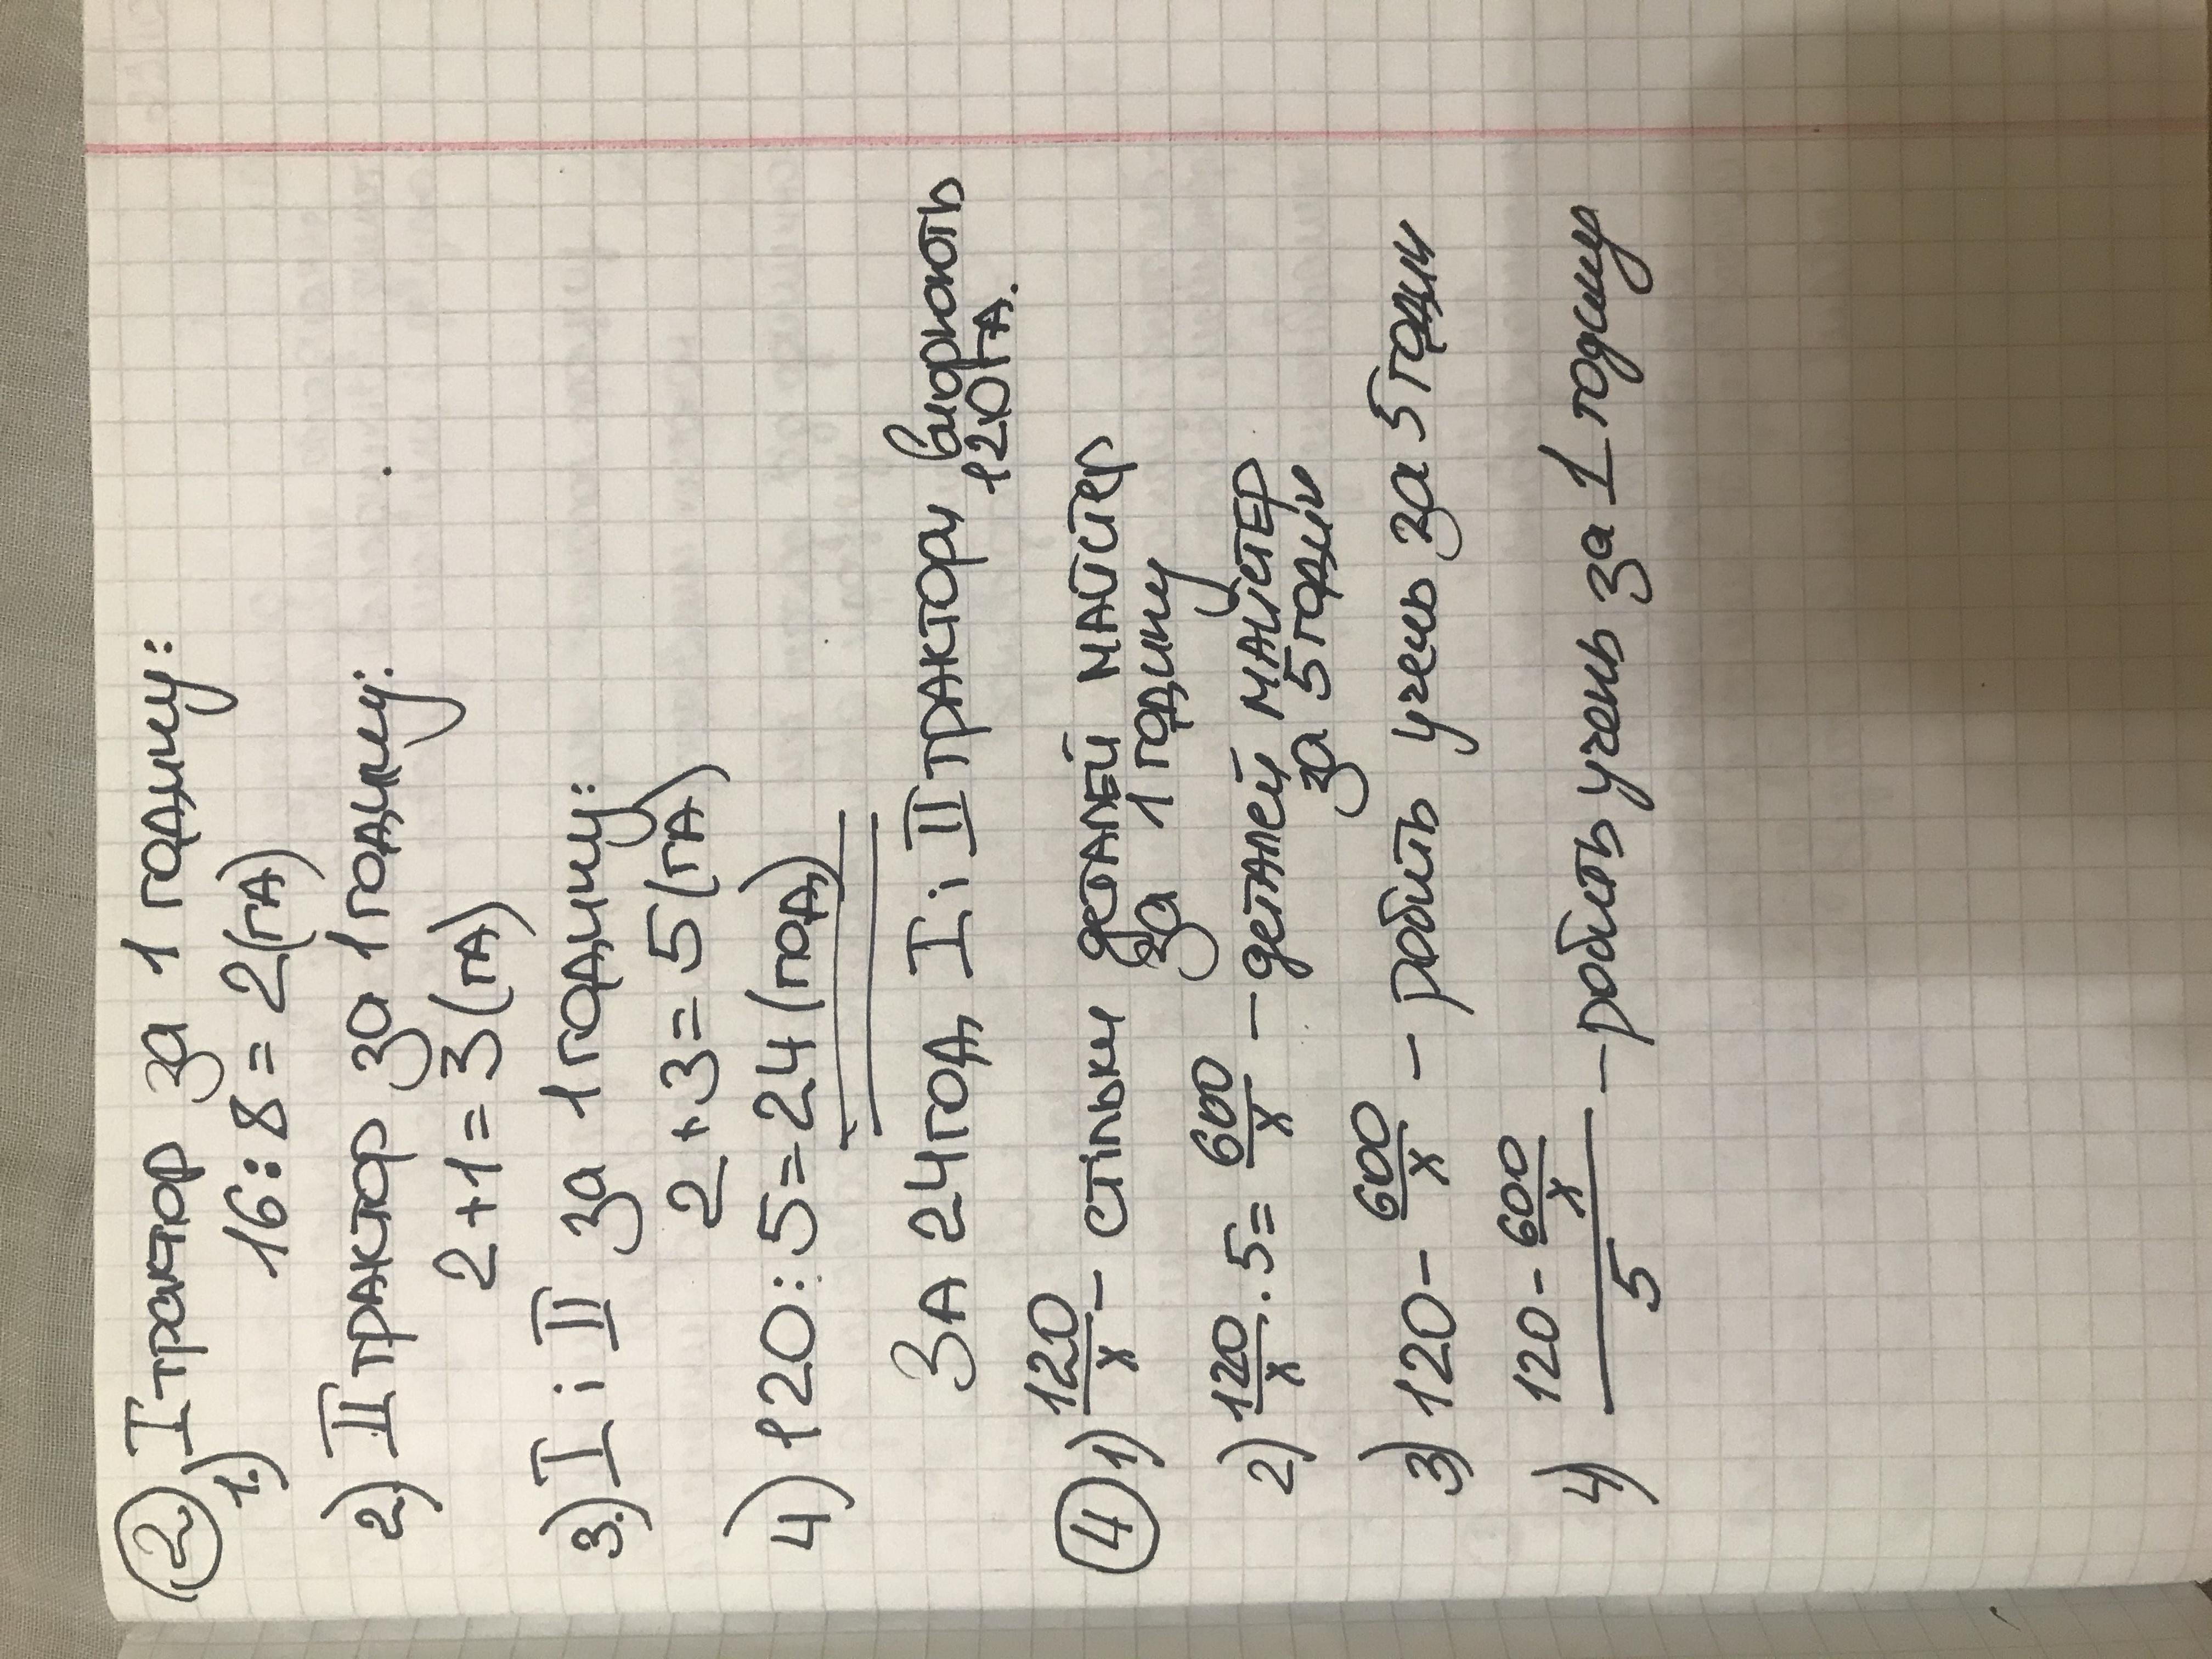 ② I трактор за 1 годину:
1.) 16:8=2(га)
2.) II трактор за 1 годину:
2+1=3(га)
3.) I i II за 1 годину:
2+3=5(га)
4) 120:5=24(год)
За 24 год I i II трактору виорють
120 га.
④ 1) 120/x – стільки деталей майстер
за 1 годину
2) 120/x · 5 = 600/x – деталей майстер
за 5 годин
3) 120 - 600/x – робить учень за 5 годин
4) (120 - 600/x)/5 – робить учень за 1 годину